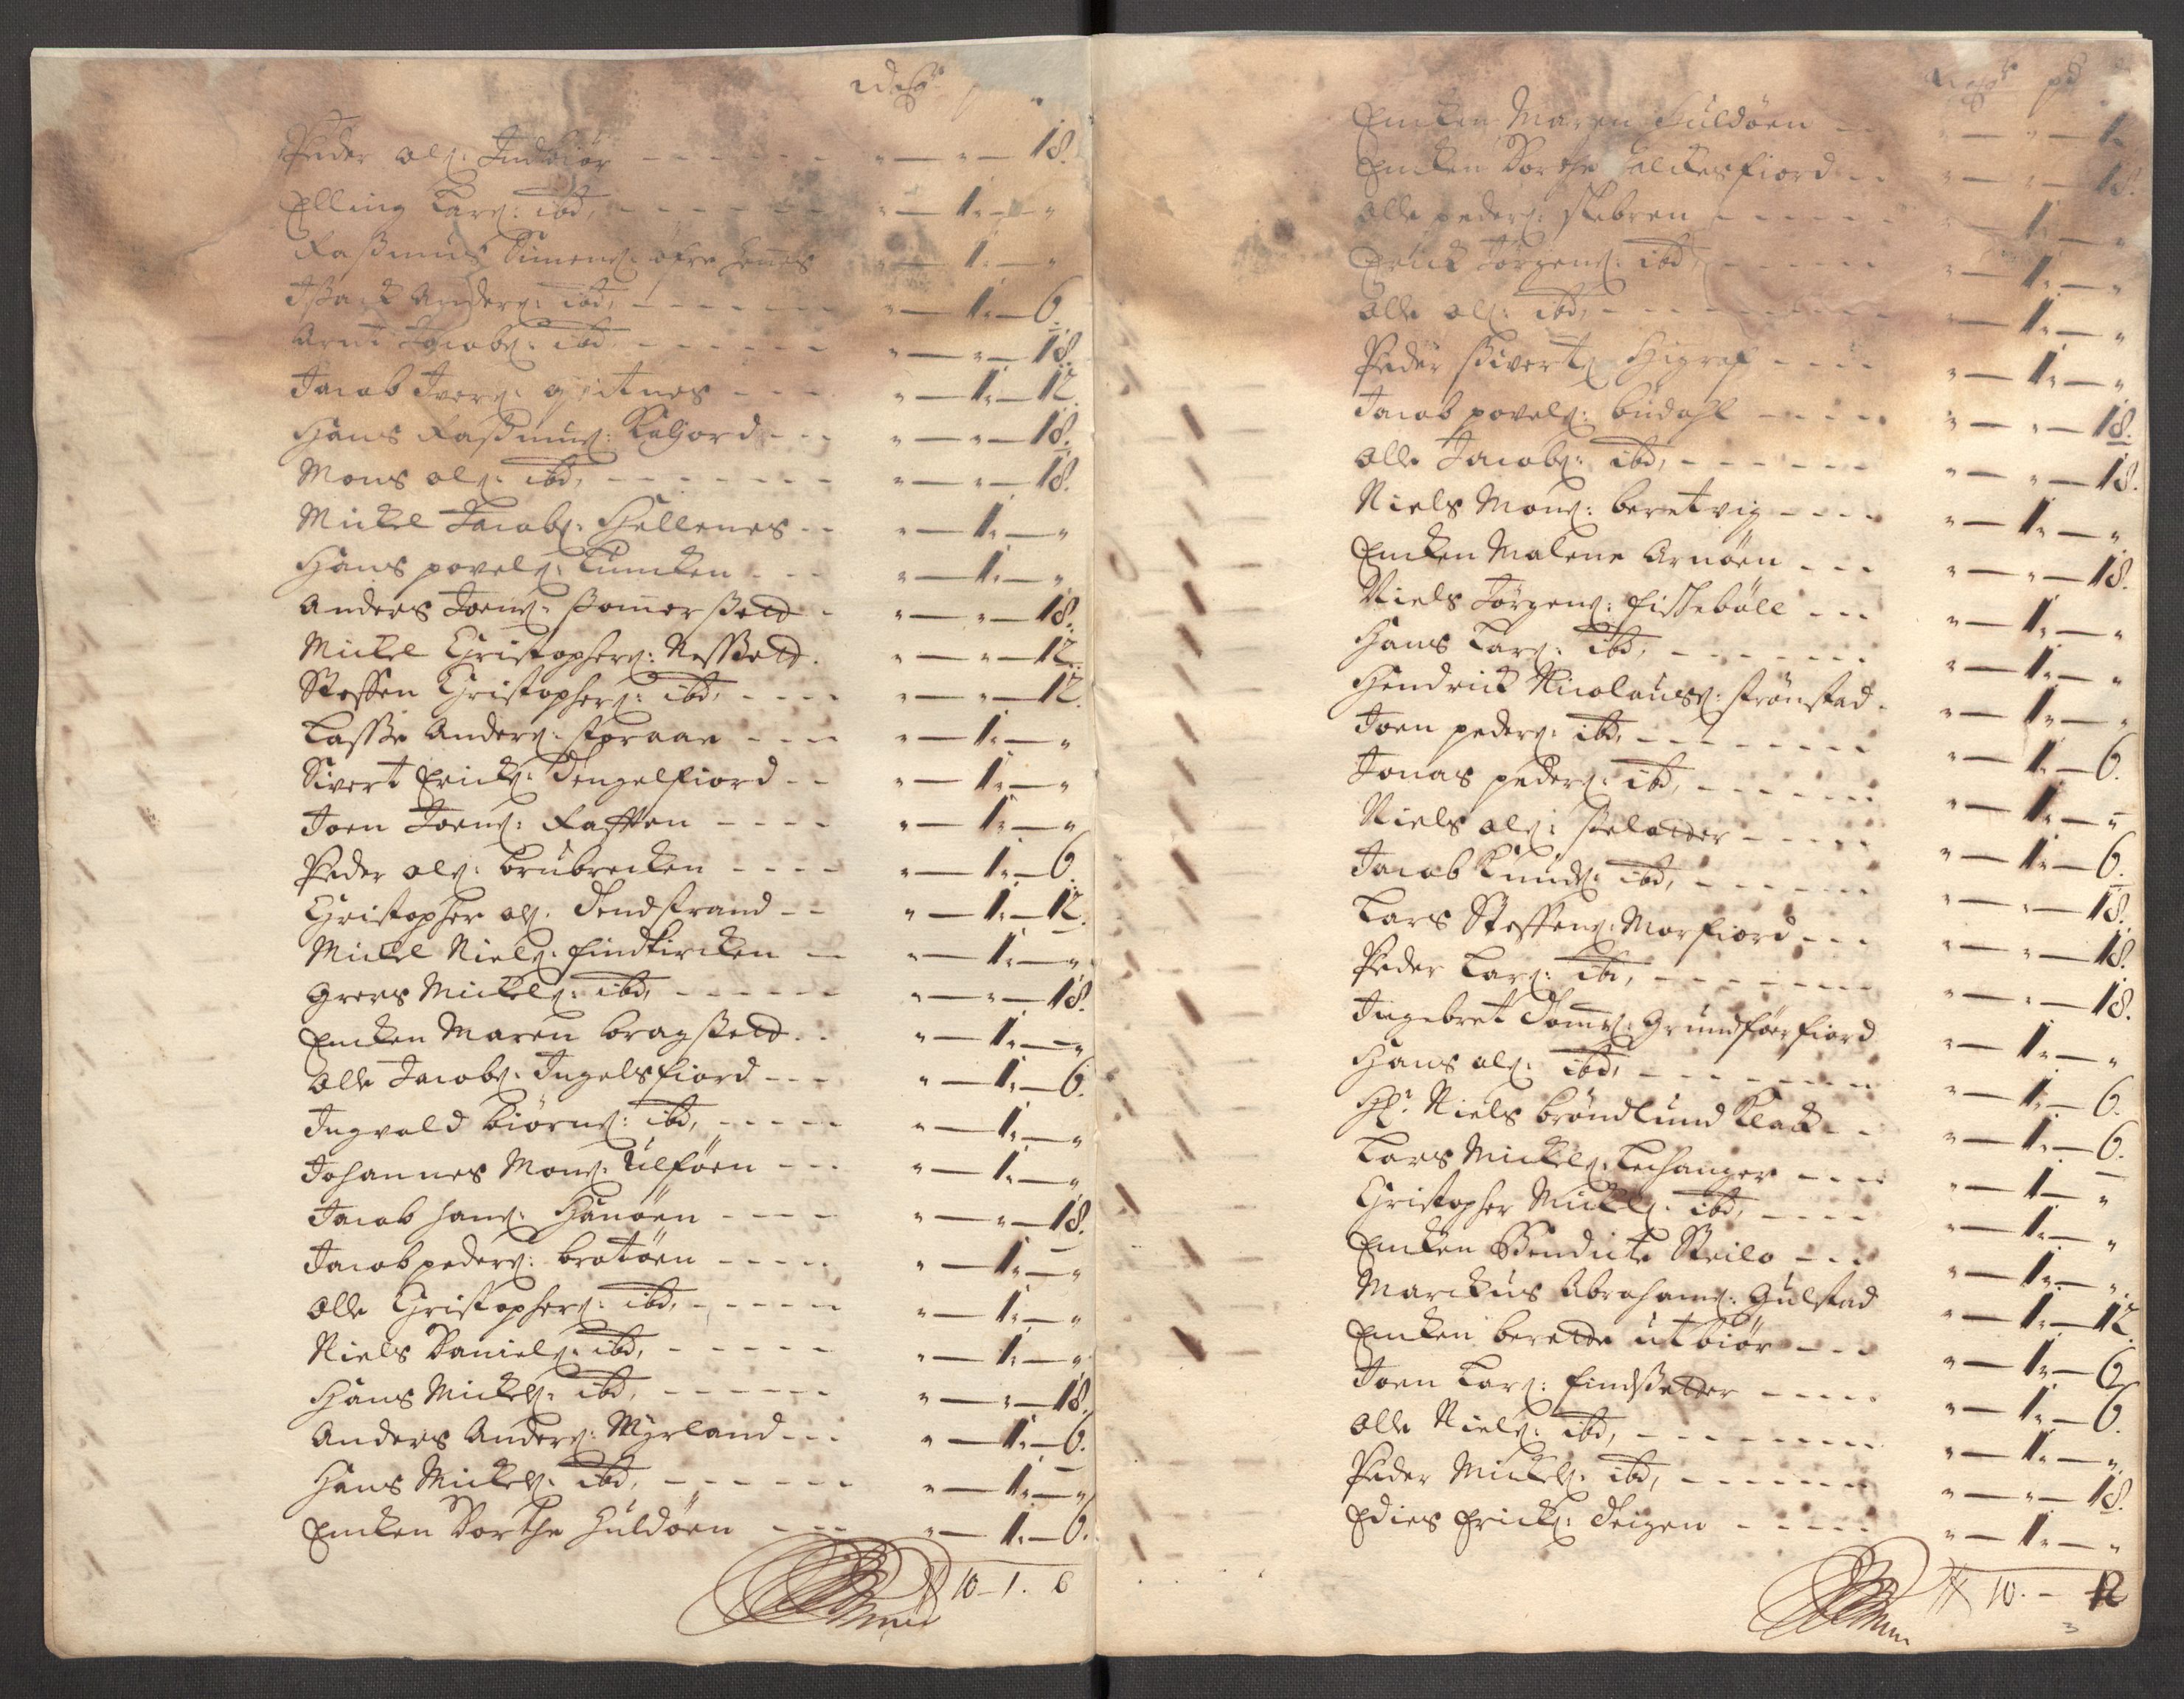 Rdlr
Peder Ols: Indbiör - - - - - " — " — 18.
Elling Lars: ibd, - - - - - - " — 1. — "
Rasmus Simens: öfre Hennes " — 1. — "
Isack Anders: ibd, - - - - - - " — 1. — 6.
Arnt Jacobs: ibd, - - - - - - " — " — 18.
Jacob Ivers: - - - " — 1. — 12.
Hans Rasmus: Kaljord - - - " — " — 18.
Mons Ols: ibd, - - - - - - - " — " — 18.
Mickel Jacobs: Hellenes - - " — 1. — "
Hans Povels: Kuncken - - - " — 1. — "
Anders Joens: Sommersett - " — " — 18.
Mickel Christophers: Nessett. " — " — 12.
Steffen Christophers: ibd, - - - - " — " — 12.
Lasse Anders: Storaae - - - - " — 1. — "
Sivert Ericks: Tengelfiord - - " — 1. — "
Joen Joens: Raften - - - - " — 1. — "
Peder Ols: Brubrecken - - - - " — 1. — 6.
Christopher Ols: Sendstrand - - " — 1. — 12.
Mickel Niels: Findkircken - - " — 1. — "
Grers Mickels: ibd, - - - - - - " — " — 18.
Encken Maren Bragsett - - " — 1. — "
Olle Jacobs: Ingelsfiord - - - " — 1. — 6.
Ingvald Biörns: ibd, - - - - - " — 1. — "
Johannes Mons: Ulföen - - - " — 1. — "
Jacob Hans: Hanöen - - - - " — " — 18.
Jacob Peders: Bratöen - - - - - " — 1. — "
Olle Christophers: ibd, - - - - - - " — 1. — "
Niels Daniels: ibd, - - - - - - " — 1. — "
Hans Mickels: ibd, - - - - - - " — " — 18.
Anders Anders: Myrland - - - " — 1. — 6.
Hans Mickels: ibd, - - - - - - " — 1. — "
Encken Dorthe Huldöen - - - " — 1. — 6.
10 — 1. 6
Rdlr pd
Encken Maren Huldöen - - " — " — 1
Encken Dorthe Falckesfiord - - " — " — 18.
Olle Peders: Skebren - - - - - " — 1. — "
Erick Jörgens: ibd, - - - - - - " — 1. — "
Olle Ols: ibd, - - - - - - - - " — 1. — "
Peder Siverts Higraf - - - - " — 1. — "
Jacob Povels: Budahl - - - - " — " — 18.
Olle Jacobs: ibd, - - - - - - " — " — 18.
Niels Mons: Beretvig - - - - " — 1. — "
Encken Malene Arnöen - - - " — " — 18.
Niels Jörgens: Fiskeböll - - - " — 1. — "
Hans Lars: ibd, - - - - - - - " — 1. — "
Hendrick Nicolaus: Strönstad - " — 1. — "
Joen Peders: ibd, - - - - - - - - " — 1. — 6.
Jonas Peders: ibd, - - - - - - " — 1. — "
Niels Ols: Selatter - - - - - " — 1. — 6.
Jacob Knuds: ibd, - - - - - - " — " — 18.
Lars Steffens: Morfiord - - - " — " — 18.
Peder Lars: ibd, - - - - - - - - " — " — 18.
Ingebret Toms: Grundföerfiord " — 1. — "
Hans Ols: ibd, - - - - - - - - " — 1. — 6.
Hr: Niels Bröndlund Kleat - - " — 1. — 6.
Lars Mickels: Lechanger - - - - " — 1 — "
Christopher Mickels: ibd, - - - - - " — 1. — "
Encken Bendicte Steilo - - - " — 1. — "
Marckus Abrahams: Gulstad " — 1. — 12.
Encken Berette Utbiör - - - " — 1. — 6.
Joen Lars: Findsetter - - - - - " — 1. — 6.
Olle Niels: ibd, - - - - - - - - " — 1. — "
Peder Mickels: ibd, - - - - - - " — " — 18.
Edies Ericks: Teigen - - - - - " — 1. — "
10. — 12
3